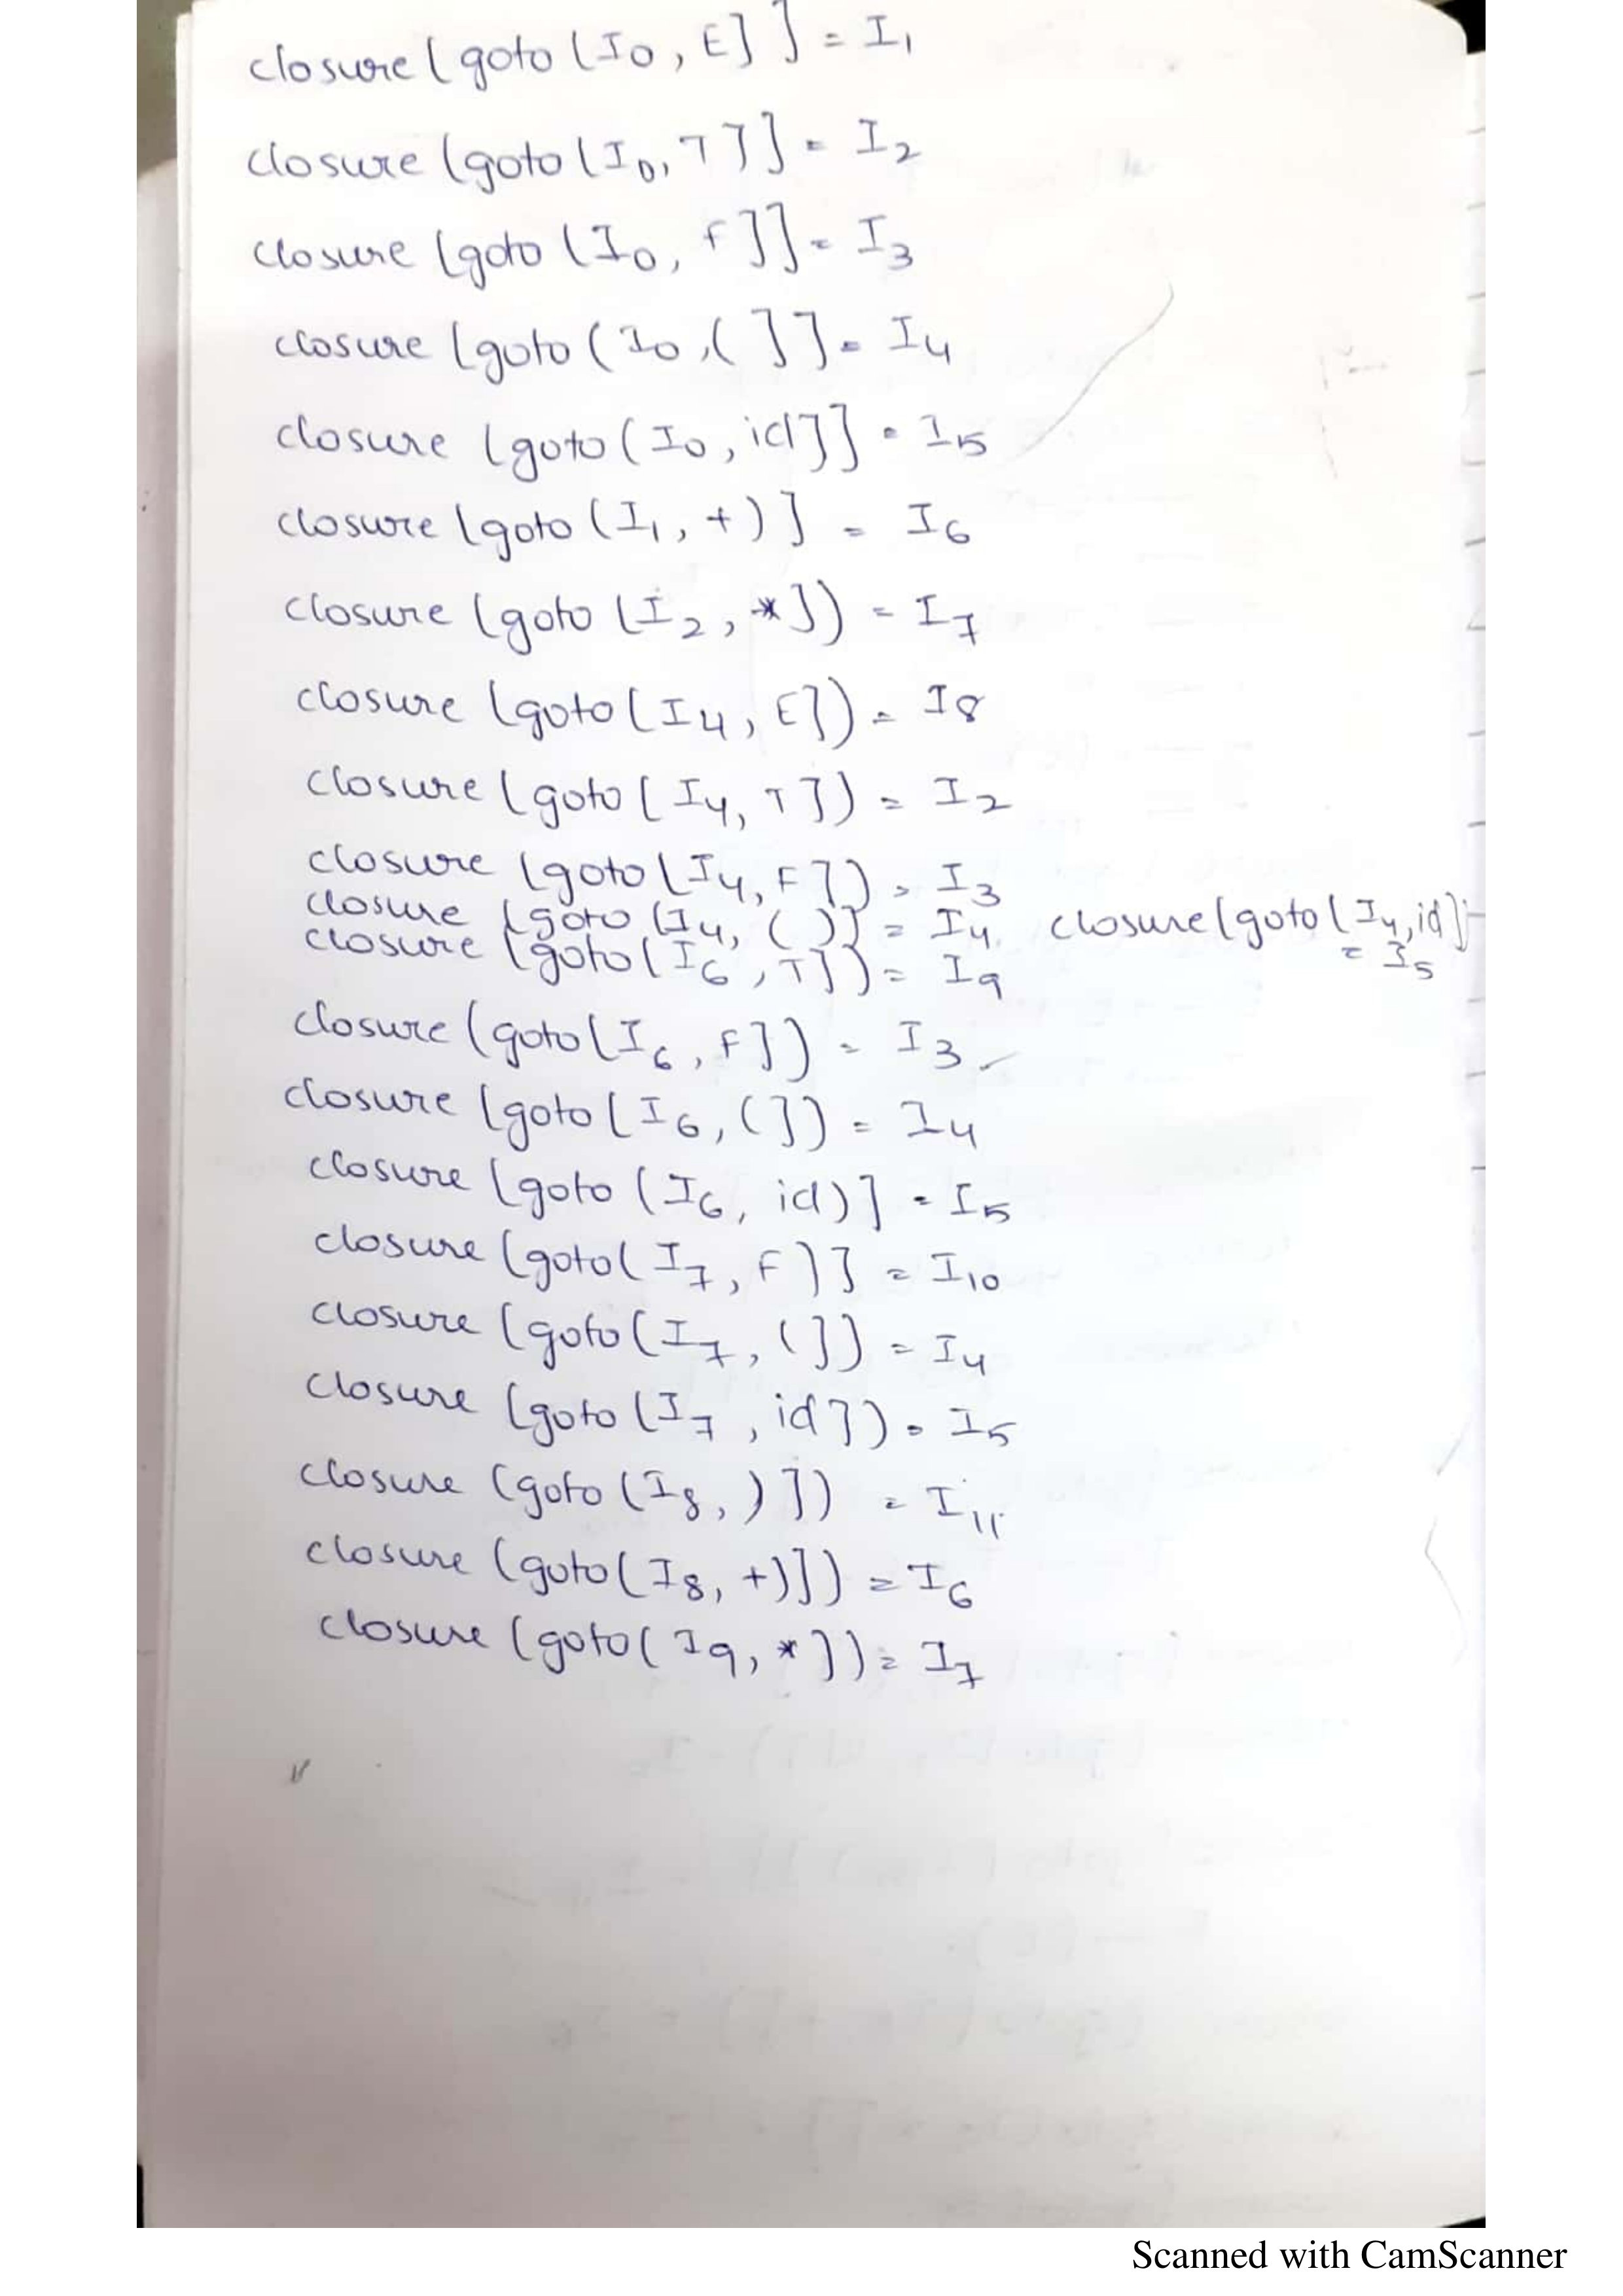 closure (goto (I0, E] ] = I1
closure (goto (I0, T]] = I2
closure (goto (I0, F]] = I3
closure (goto (I0, ( ]] = I4
closure (goto (I0, id]] = I5
closure (goto (I1, +)] = I6
closure (goto (I2, *]) = I7
closure (goto (I4, E]) = I8
closure (goto (I4, T]) = I2
closure (goto (I4, F]) = I3
closure (goto (I4, ( )] = I4 closure (goto (I4, id]) = I5
closure (goto (I6, T]) = I9
closure (goto (I6, F]) = I3
closure (goto (I6, (]) = I4
closure (goto (I6, id)] = I5
closure (goto (I7, F)] = I10
closure (goto (I7, (]) = I4
closure (goto (I7, id]) = I5
closure (goto (I8, )]) = I11
closure (goto (I8, +)]) = I6
closure (goto (I9, *])) = I7
Scanned with CamScanner